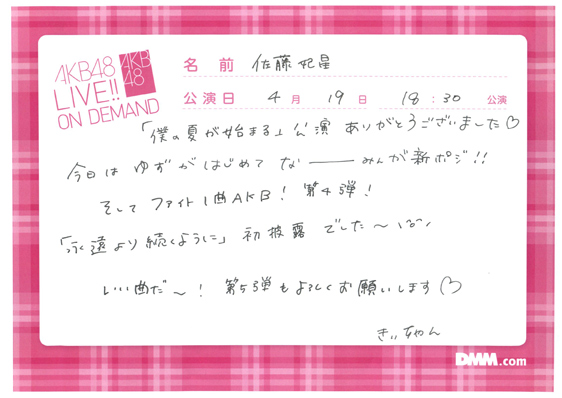 AKB48
LIVE!!
ON DEMAND
AKB
48
名前 佐藤妃星
公演日 4月 19日 18:30 公演
「僕の夏が始まる」公演 ありがとうございました♡
今日は ゆずがはじめて なーみんが新ポジ!!
そして ファイト1曲AKB! 第4弾!
「永遠より続くように」初披露でした〜
いい曲だ〜! 第5弾もよろしくお願いします♡
きぃちゃん
DMM.com